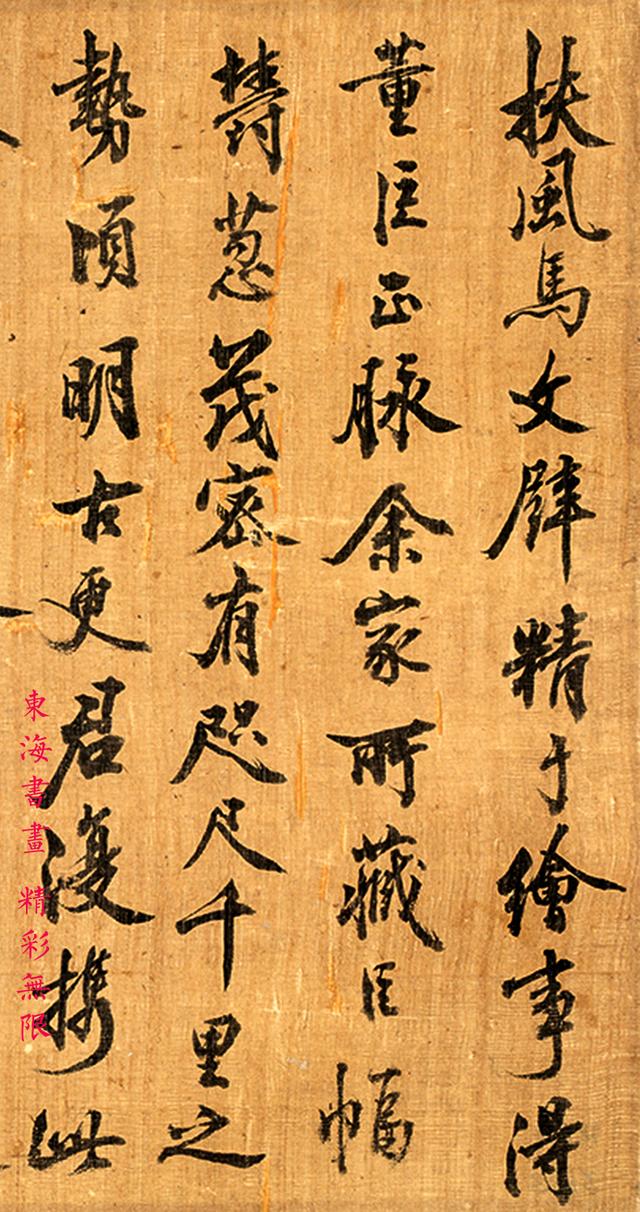 扶風馬文璧精于繪事得
董巨正脉余家所藏巨幅
葱茂密有咫尺千里之
勢頃明古更君復携此
東海書畫 精彩無限